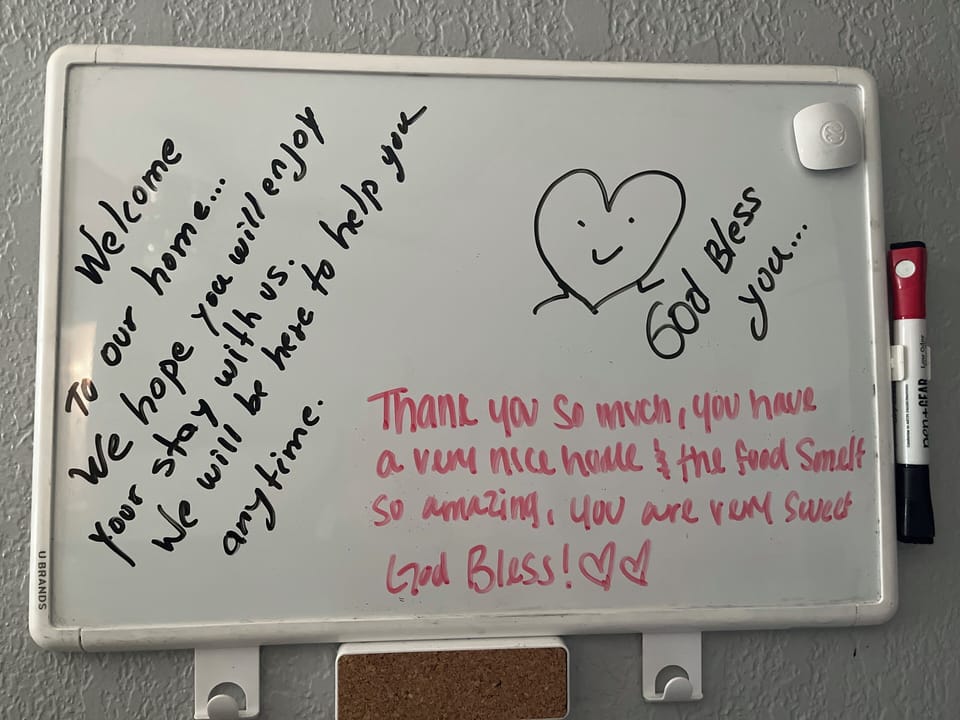 Welcome
To our home...
We hope you will enjoy
your stay with us.
We will be here to help you
anytime.
God Bless
you...
Thank you so much, you have
a very nice home & the food smelt
so amazing, you are very sweet
God Bless! ♡♡
U BRANDS
pen+GEAR
Low Odor